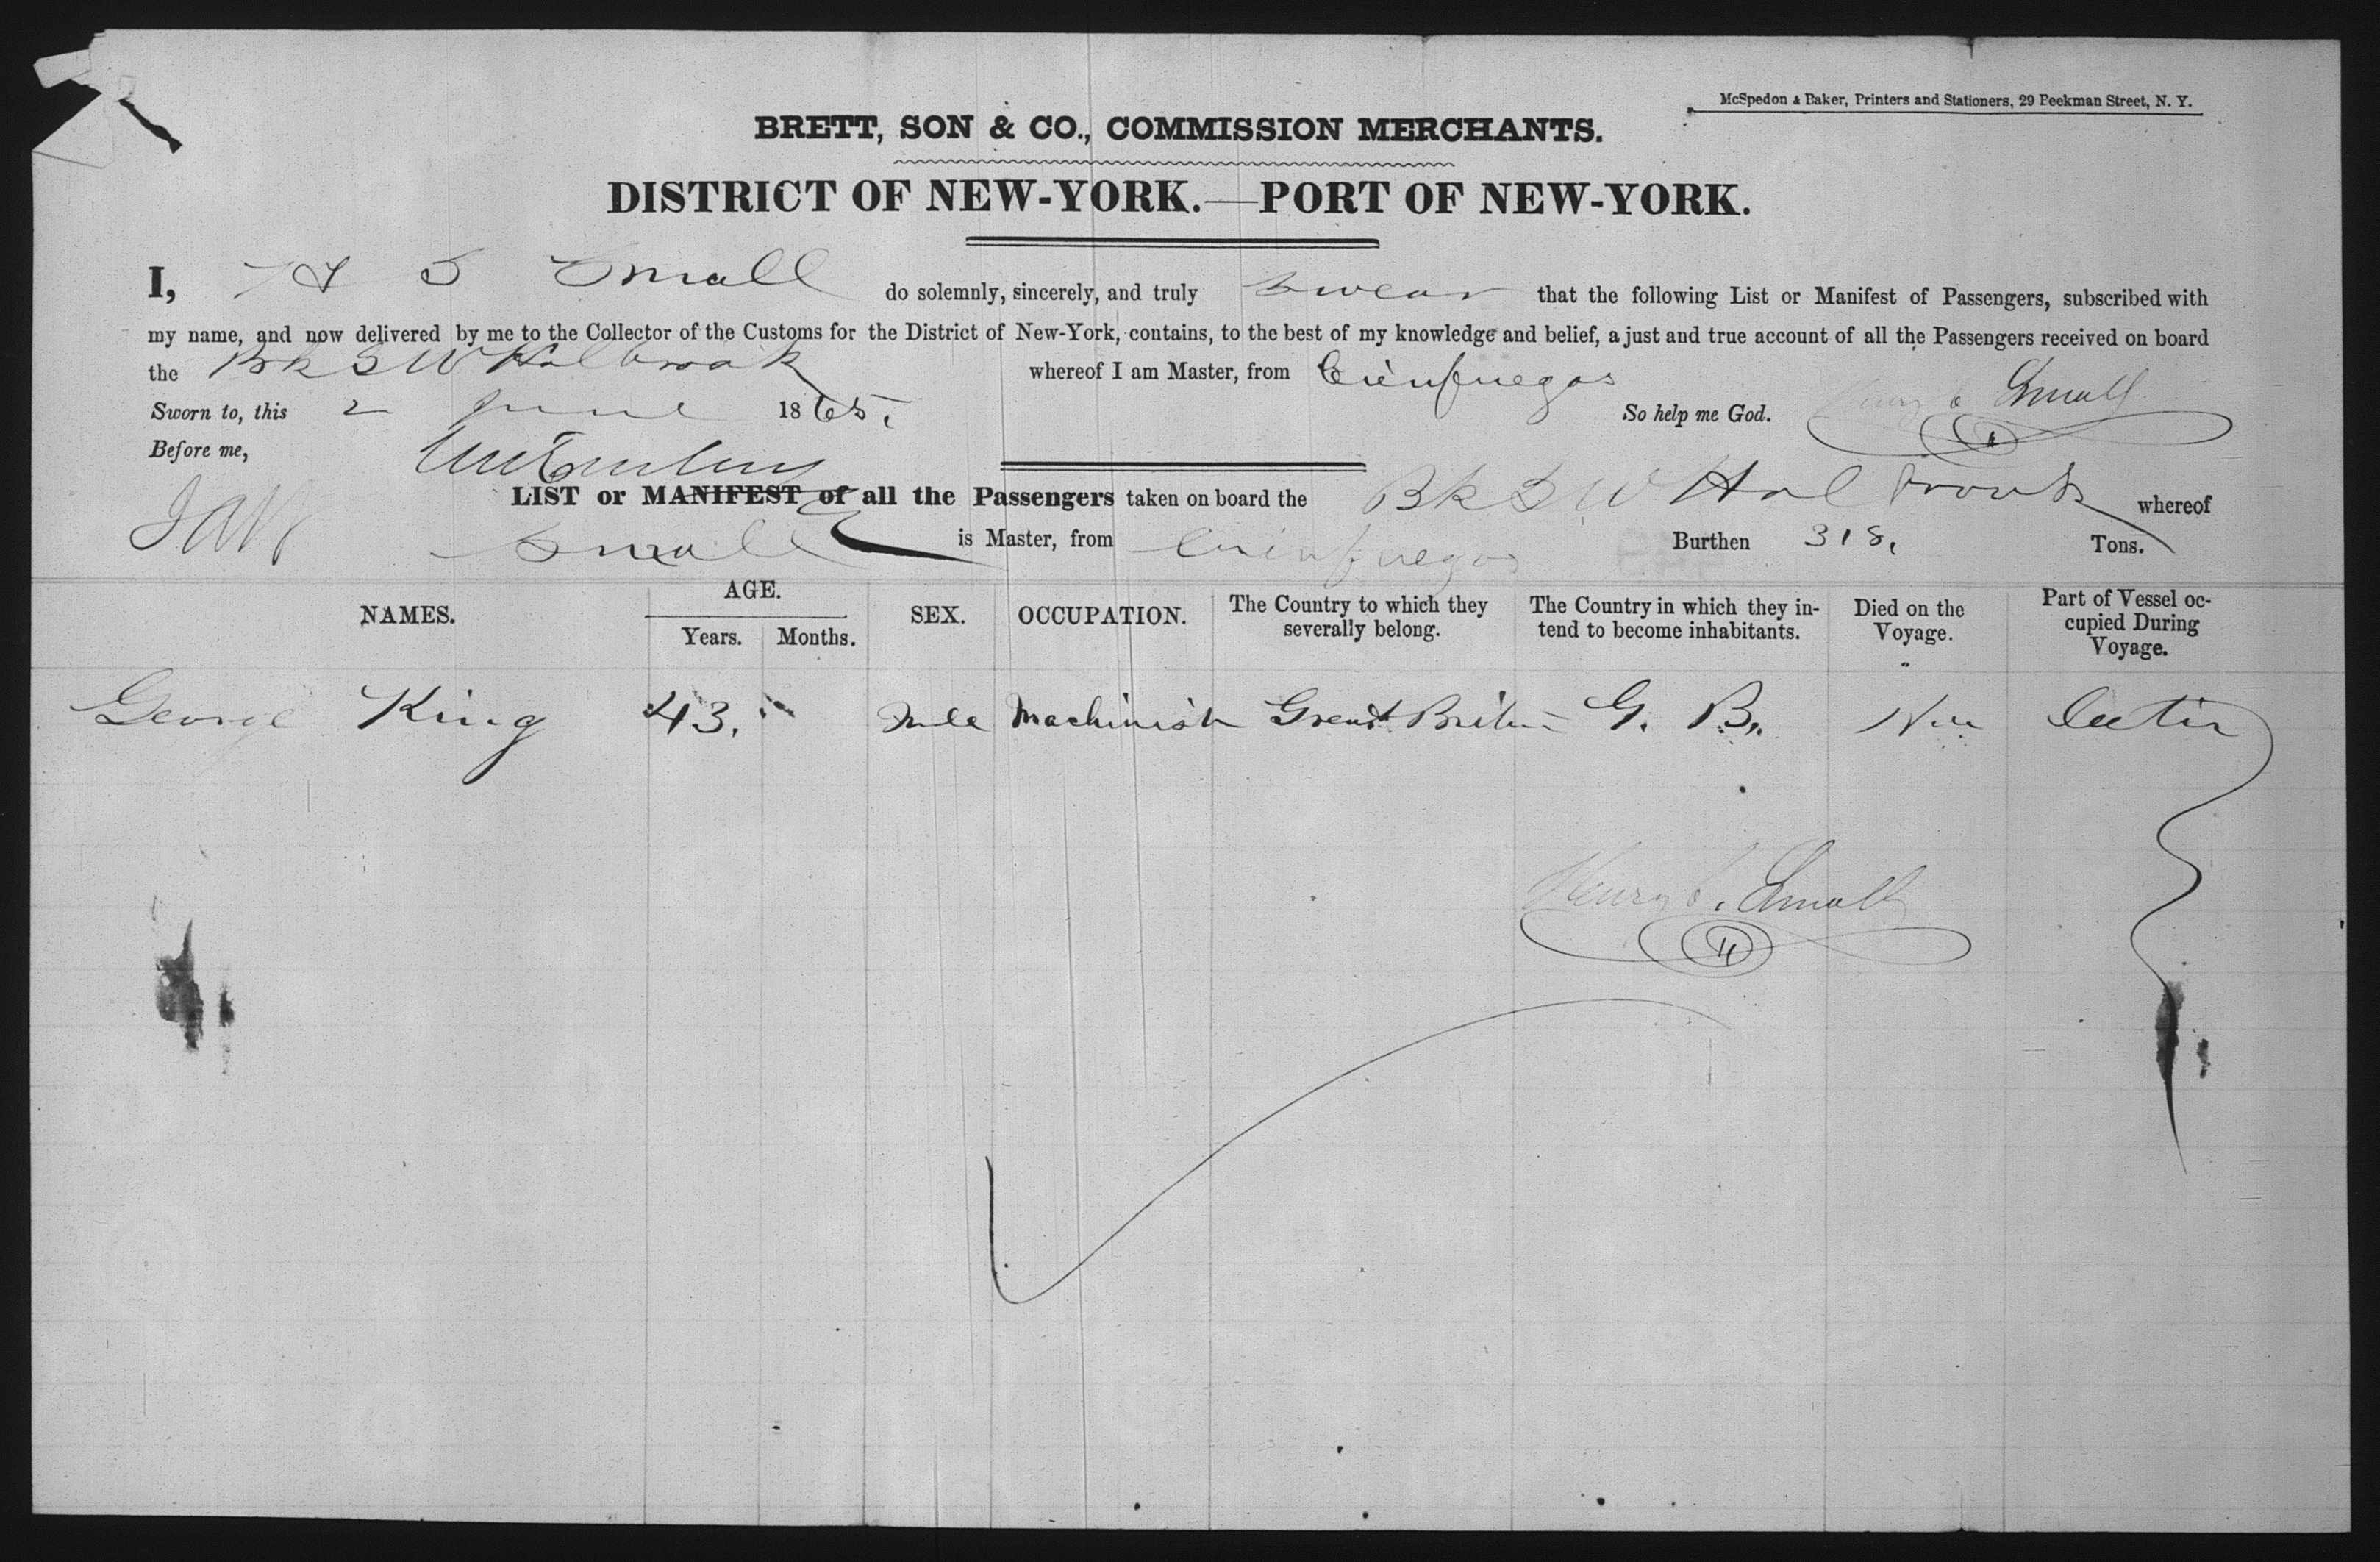 McSpedon & Baker, Printers and Stationers, 29 Beekman Street, N. Y.
BRETT, SON & CO., COMMISSION MERCHANTS.
DISTRICT OF NEW-YORK.—PORT OF NEW-YORK.
I, H S Small do solemnly, sincerely, and truly swear that the following List or Manifest of Passengers, subscribed with
my name, and now delivered by me to the Collector of the Customs for the District of New-York, contains, to the best of my knowledge and belief, a just and true account of all the Passengers received on board
the Bk S W Holbrook whereof I am Master, from Cienfuegos
Sworn to, this 2 June 1865. So help me God. Henry S Small
Before me,
LIST or MANIFEST of all the Passengers taken on board the Bk S W Holbrook whereof
Small is Master, from Cienfuegos Burthen 318, Tons.
NAMES. AGE. Years. Months. SEX. OCCUPATION. The Country to which they severally belong. The Country in which they intend to become inhabitants. Died on the Voyage. Part of Vessel occupied During Voyage.
George King 43. Male Machinist Great Britain G. B.
Henry S. Small